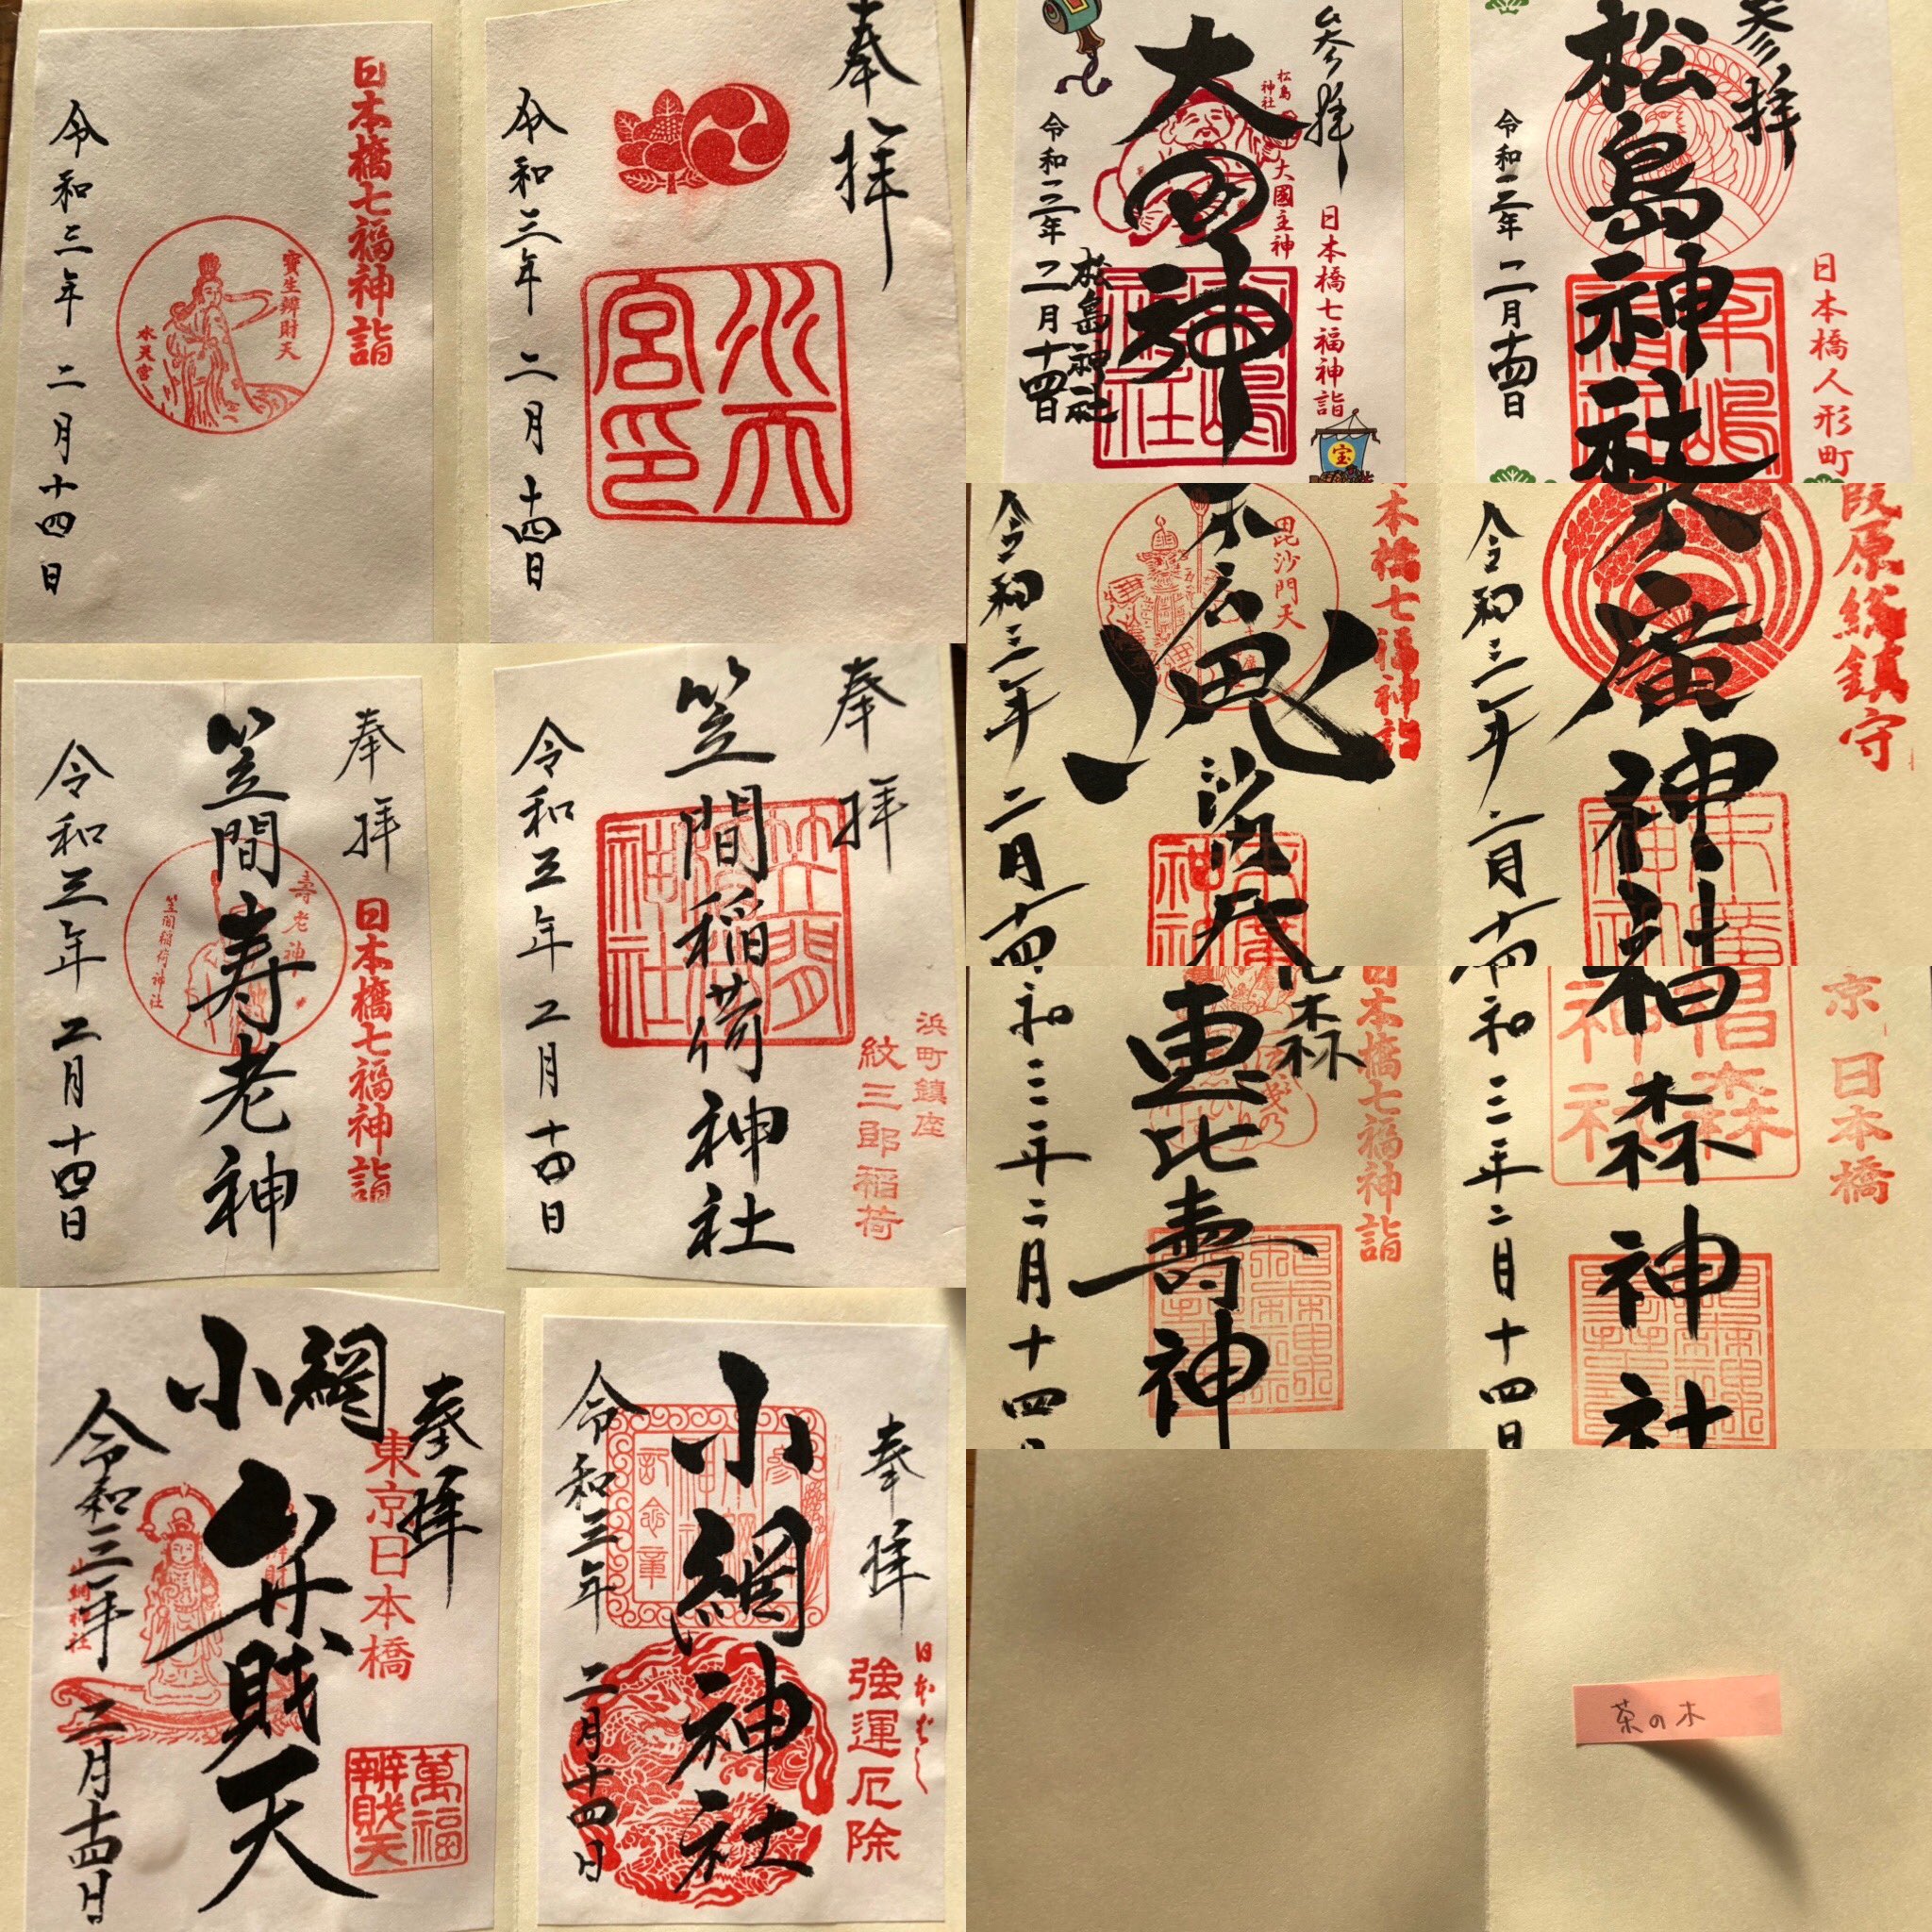 日本橋七福神詣
寳生辨財天
水天宮
令和三年 二月十四日
奉拝
水天宮印
令和三年 二月十四日
笠間寿老神
奉拝
日本橋七福神詣
壽老神
笠間稲荷神社
令和三年 二月十四日
奉拝
笠間稲荷神社
笠間稲荷神社
浜町鎮座
紋三郎稲荷
令和三年 二月十四日
奉拝
小網
弁財天
東京日本橋
小網神社
萬福
辨財天
令和三年 二月十四日
奉拝
小網神社
日本ばし
強運厄除
令和三年 二月十四日
参拝
松島神社
大國主神
日本橋七福神詣
大国神
宝
松島神社
令和三年 二月十四日
参拝
松島神社
日本橋人形町
令和三年 二月十四日
本橋七福神詣
毘沙門天
末廣
毘沙門天
令和三年 二月十四
葭原総鎮守
末廣神社
令和三年 二月十四
日本橋七福神詣
椙森
恵比寿神
和三年二月十四日
京 日本橋
椙森神社
椙森神社
令和三年二月十四日
茶の木